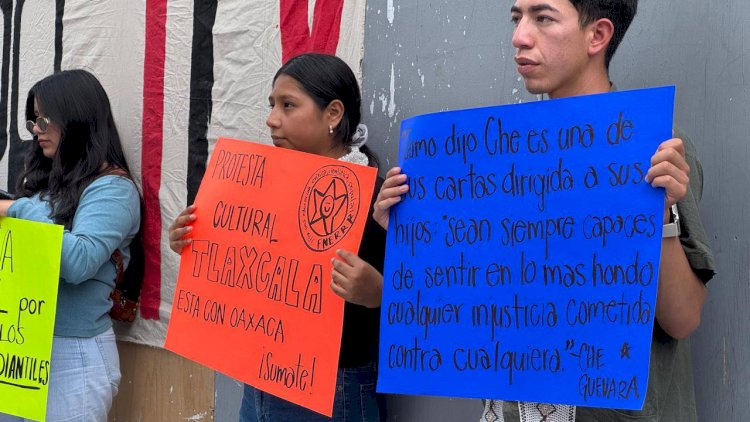 A
por
LOS
DIANTILES
PROTESTA
CULTURAL
TLAXCALA
ESTA CON OAXACA
¡Sumate!
F.N.E.R.R.R
Como dijo Che es una de
sus cartas dirigida a sus
hijos: "sean siempre capaces
de sentir en lo mas hondo
cualquier injusticia cometida
contra cualquiera."-CHE
GUEVARA